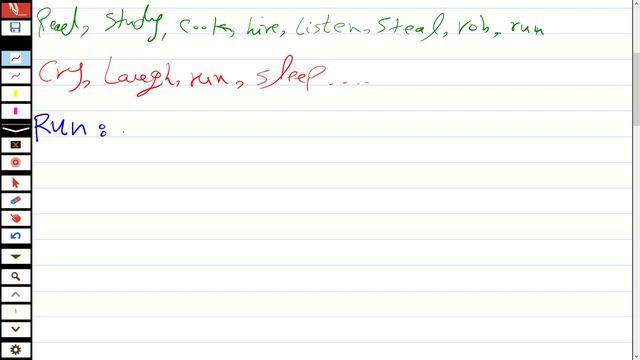 Read, Study, cook, hire, Listen, Steal, rob, run
Cry, Laugh, run, sleep....
Run: